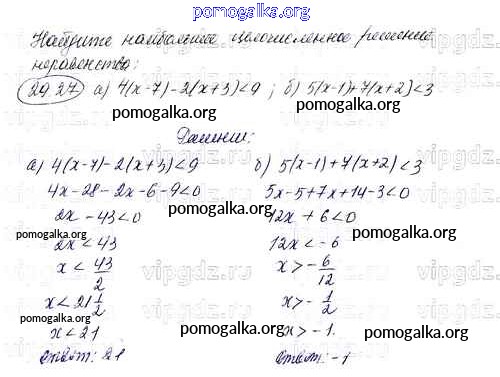 pomogalka.org
Найдите наибольшее целочисленное решение
неравенства:
29.27 а) 4(x-7)-2(x+3)<9 ; б) 5(x-1)+7(x+2)<3
pomogalka.org pomogalka.org
Решение:
а) 4(x-7)-2(x+3)<9 б) 5(x-1)+7(x+2)<3
pomogalka.org pomogalka.org
4x-28-2x-6-9<0 5x-5+7x+14-3<0
2x-43<0 12x+6<0
pomogalka.org
2x<43 12x<-6
pomogalka.org
x<43/2 x>-6/12
vipgdz.ru vipgdz.ru
x<21 1/2 x>-1/2
pomogalka.org
x<21 x>-1.
pomogalka.org
Ответ: 21 Ответ: -1
pomogalka.org